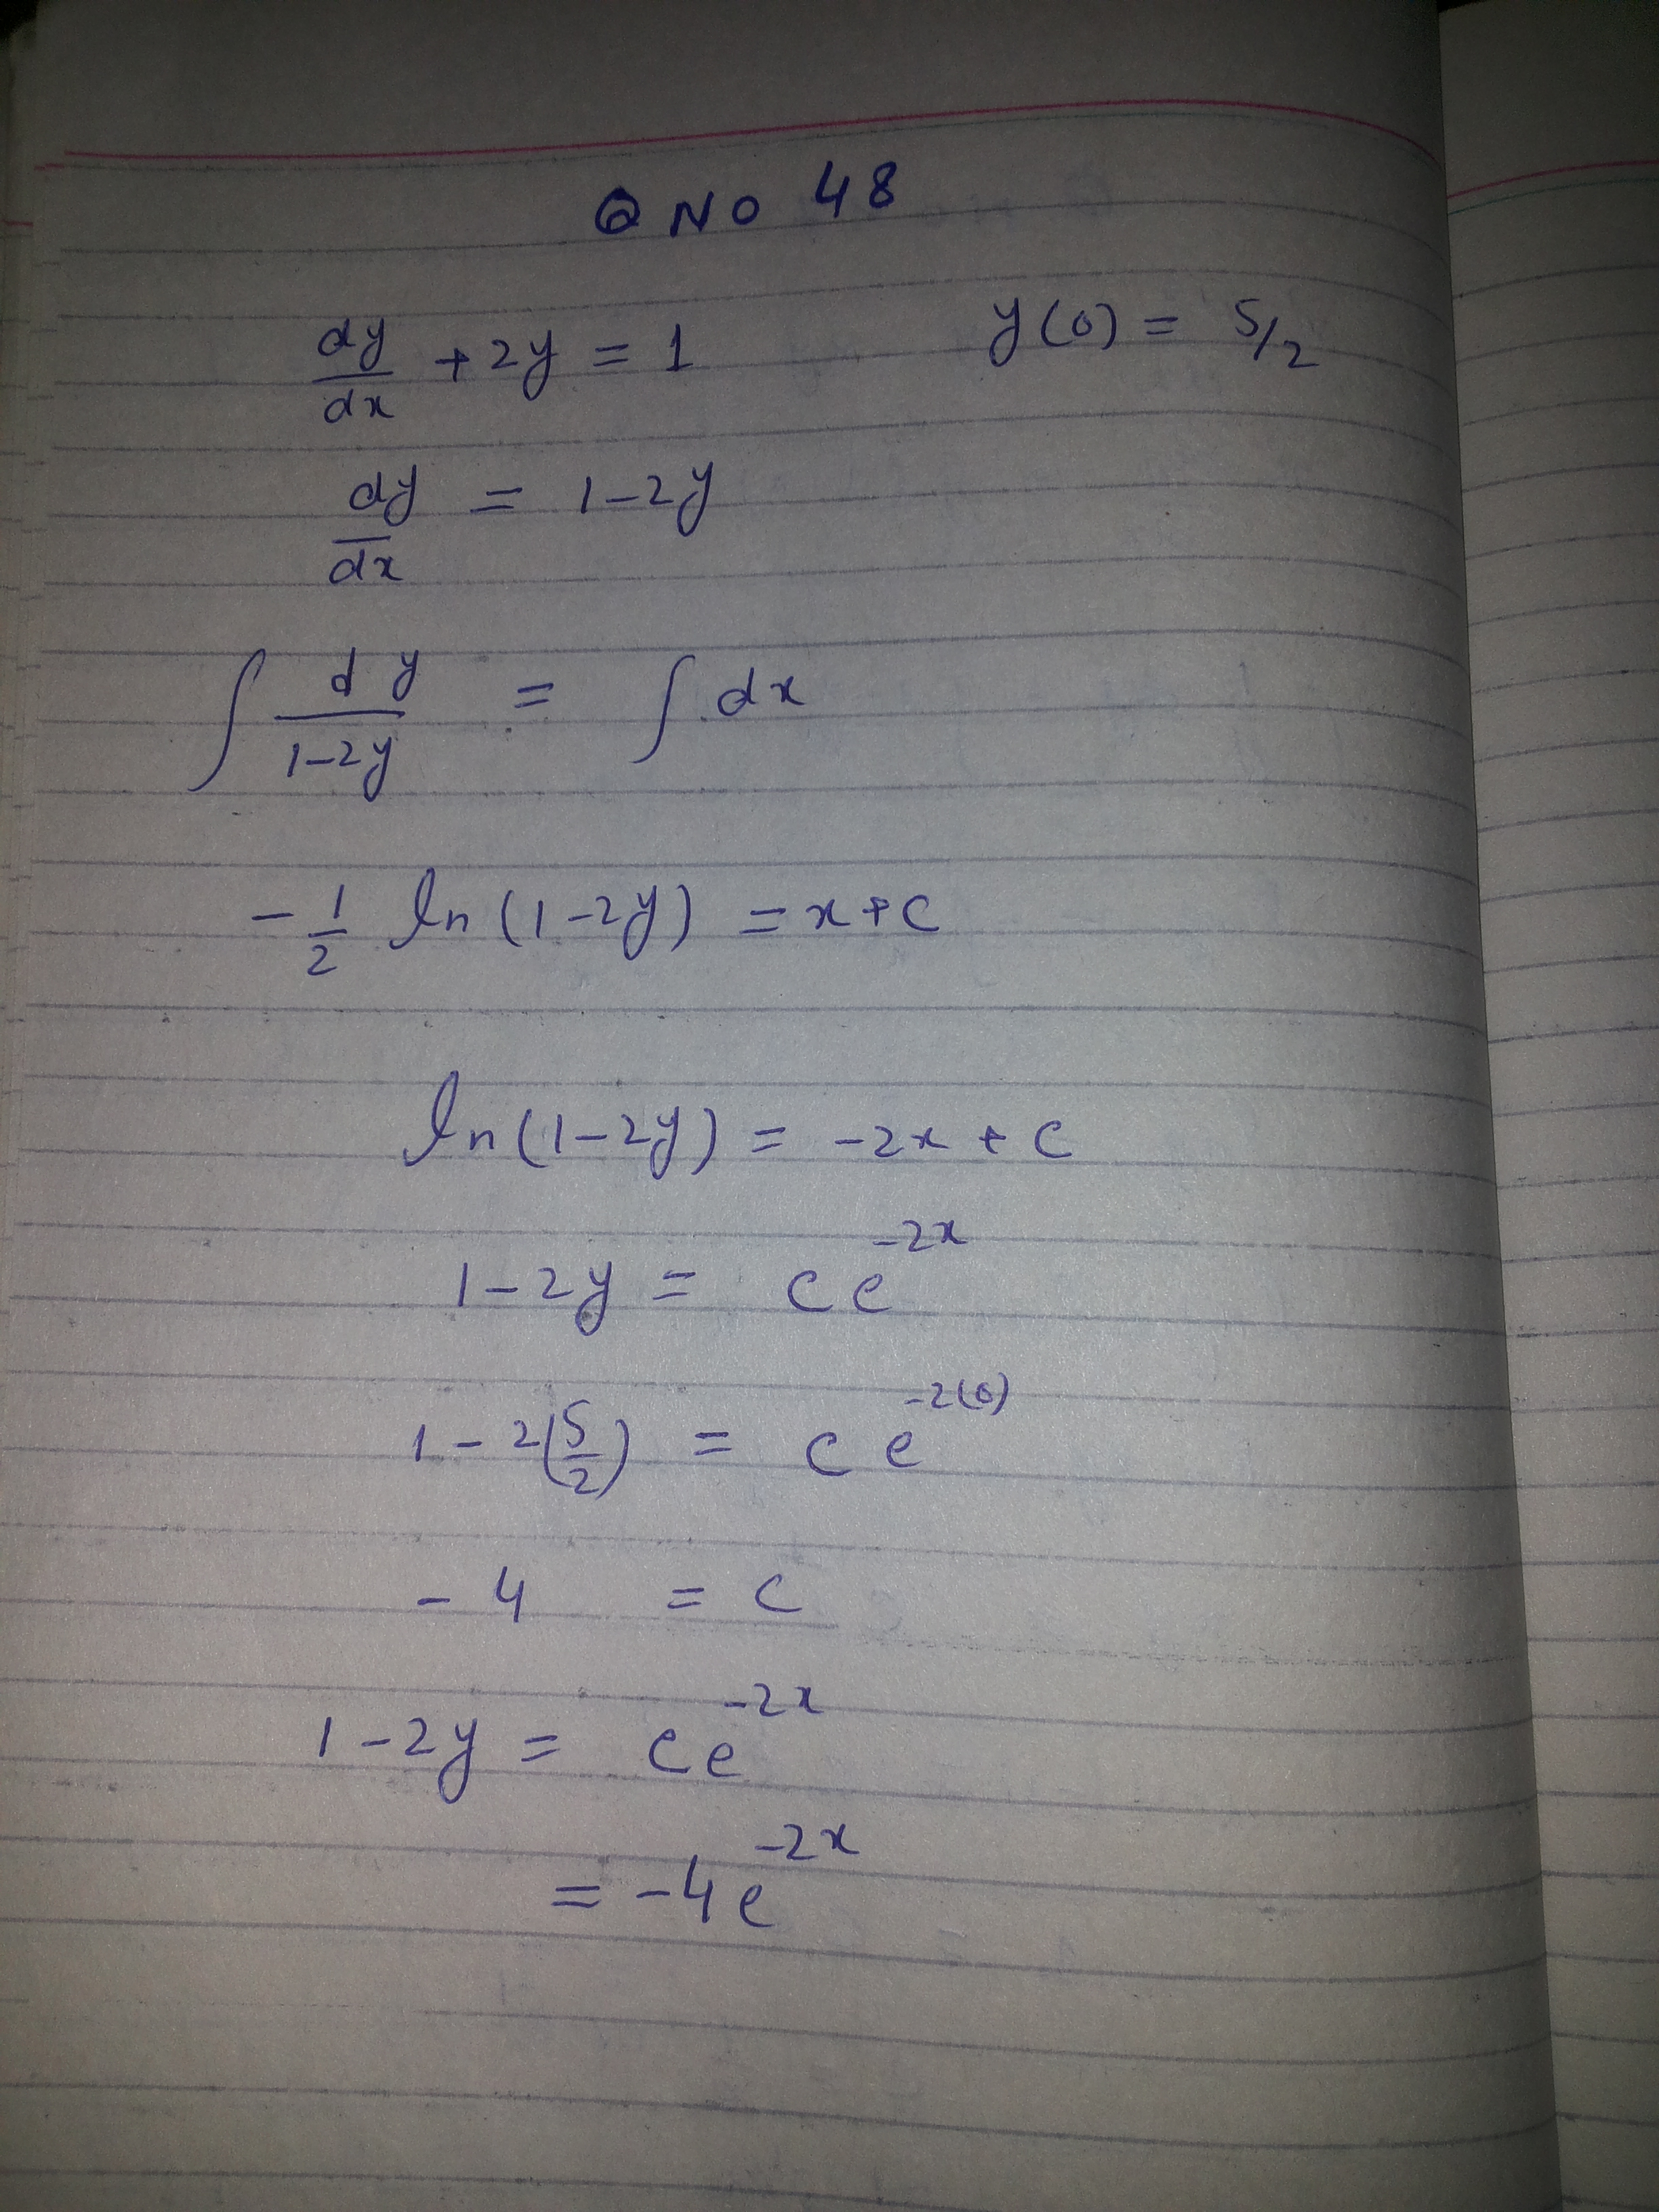 Q NO 48
dy/dx + 2y = 1    y(0) = 5/2
dy/dx = 1-2y
∫ dy/(1-2y) = ∫ dx
-1/2 ln(1-2y) = x+c
ln(1-2y) = -2x + c
1-2y = c e^(-2x)
1-2(5/2) = c e^(-2(0))
-4 = c
1-2y = ce^(-2x)
= -4e^(-2x)